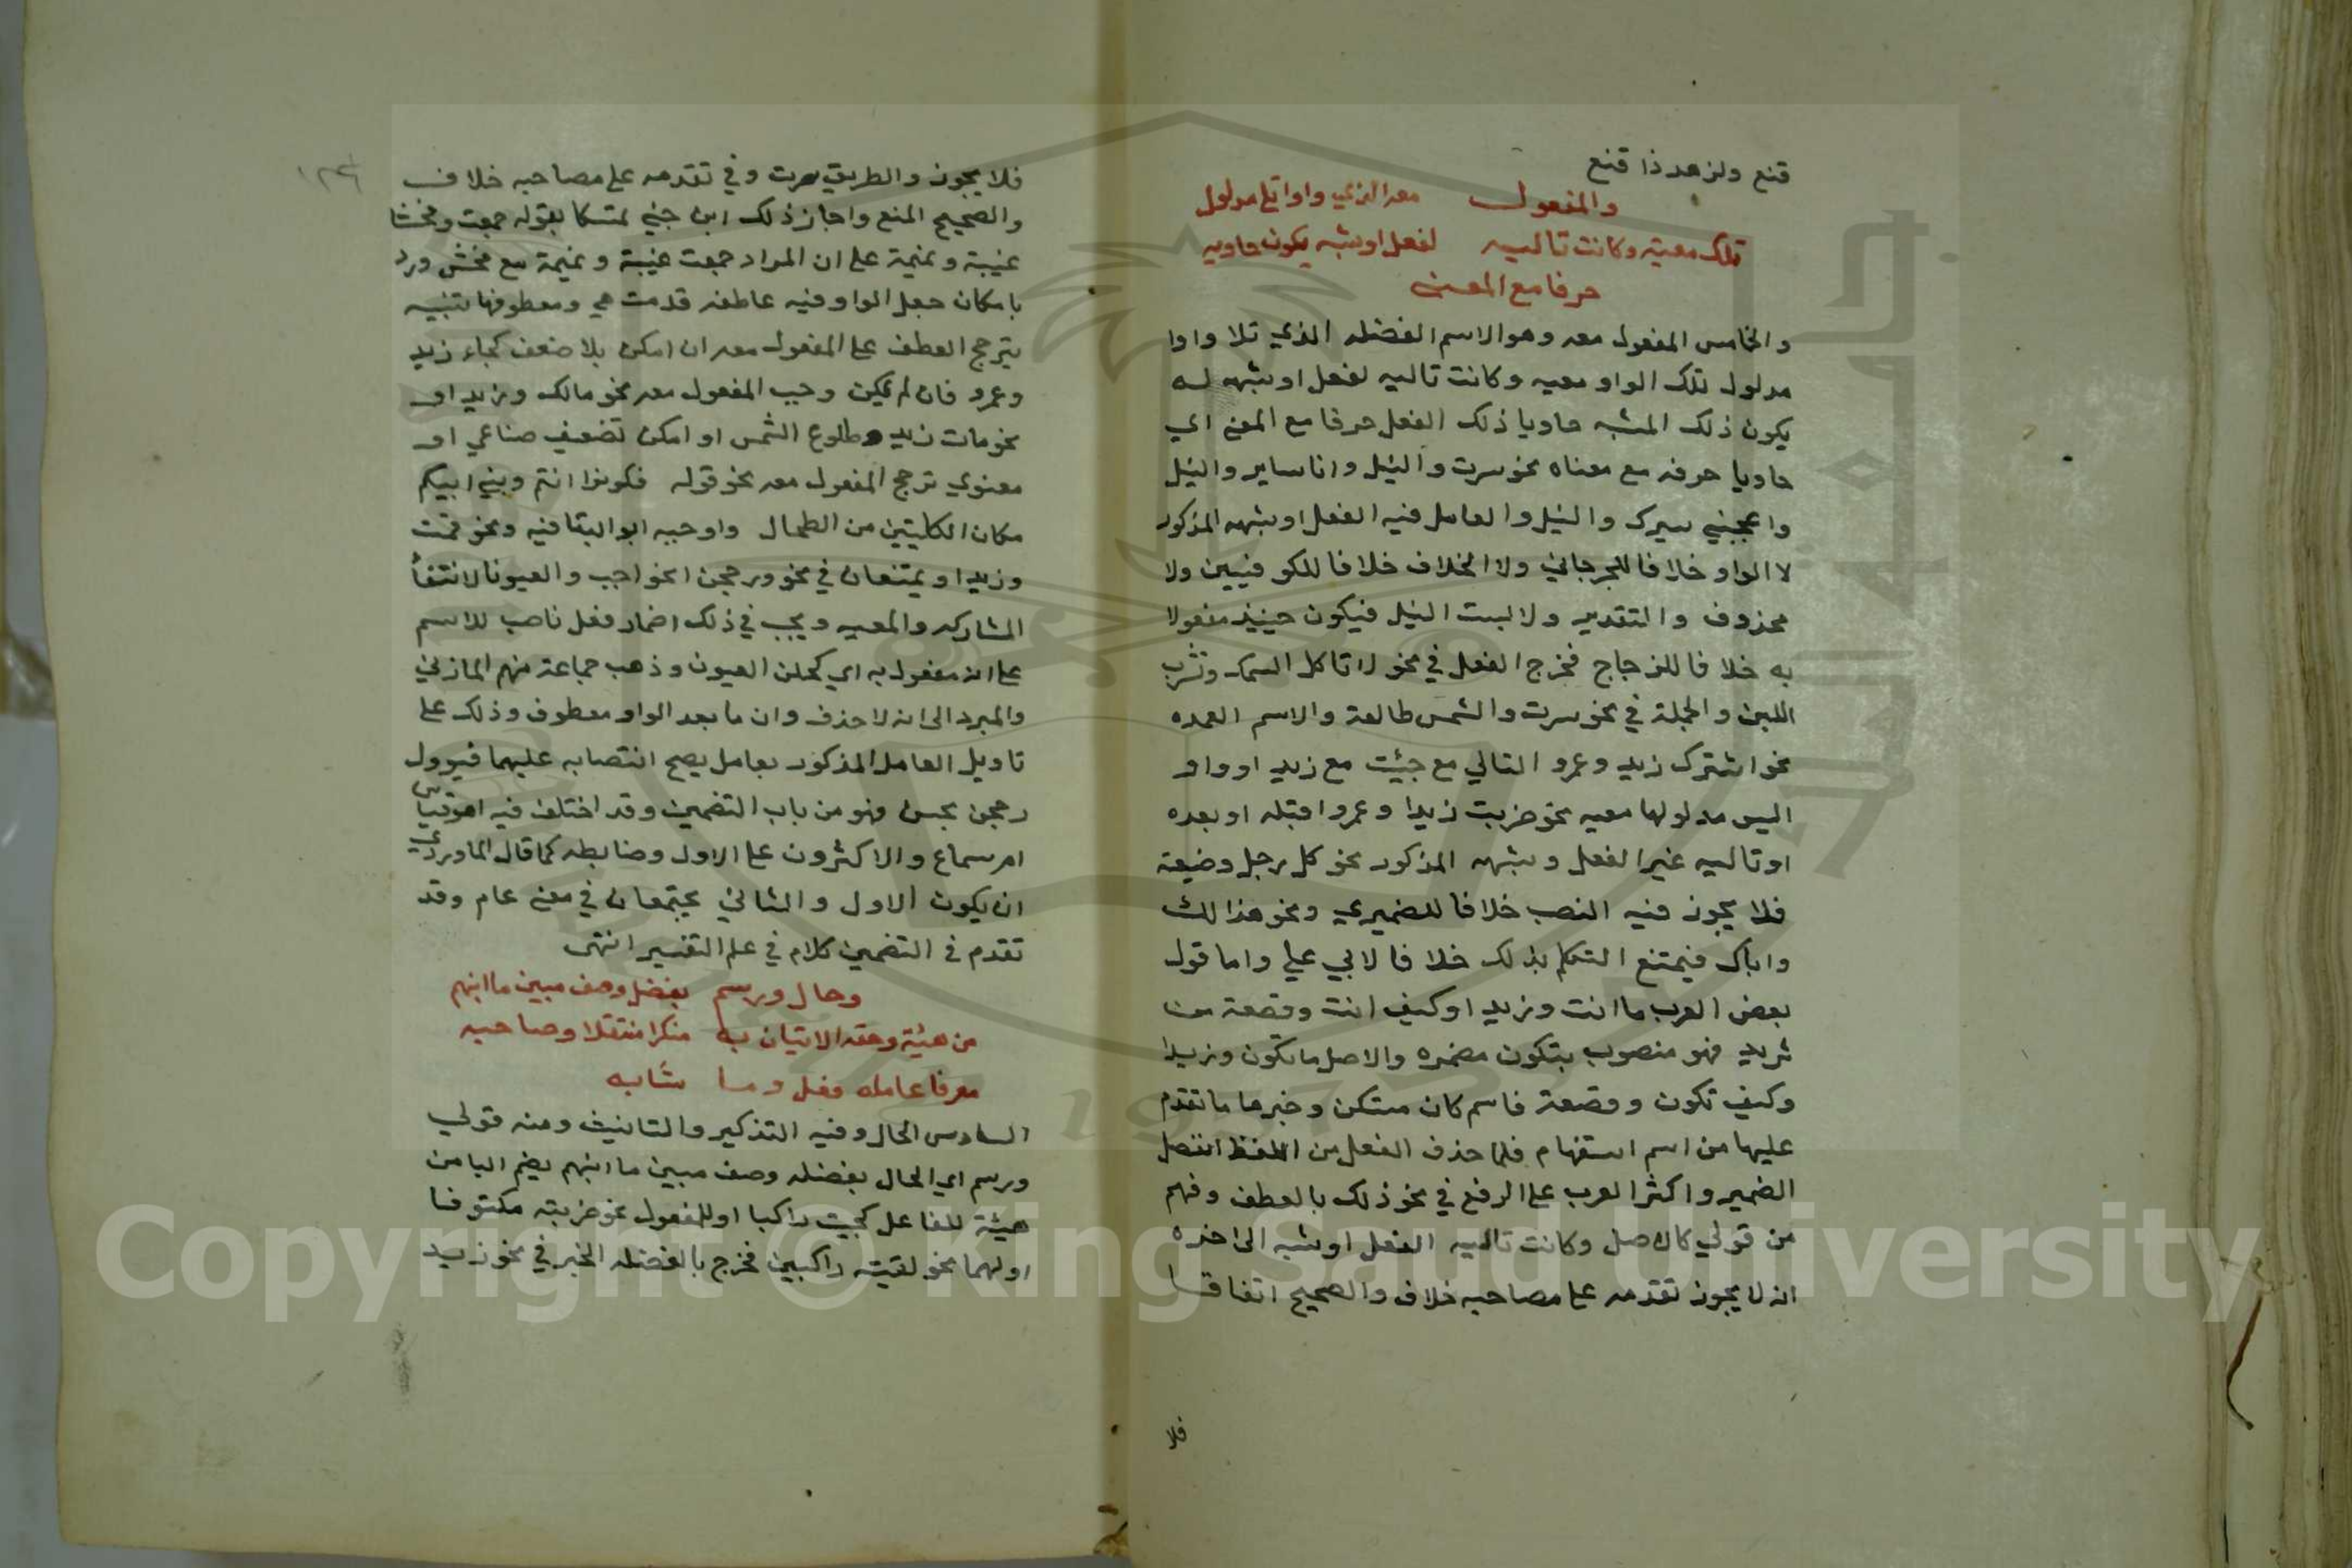 قنع ولزهد ذا قنع
والمفعول معه الذي واوا تلي مدلول
تلك معية وكانت تاليه لفعل او شبه يكون حاويه
حرفا مع المعنى
والخامس المفعول معه وهو الاسم الفضلة الذي تلا واوا
مدلول تلك الواو معيه وكانت تاليه لفعل او شبهه له
يكون ذلك المشبه حاويا ذلك الفعل حرفا مع المعنى اي
حاويا حرفه مع معناه نحو سرت والنيل وانا ساير والنيل
واعجبني سيرك والنيل والعامل فيه الفعل او شبهه المذكور
لا الواو خلافا للجرجاني ولا الخلاف خلافا للكوفيين ولا
محذوف والتقدير ولابست النيل فيكون حينيذ مفعولا
به خلافا للزجاج فخرج الفعل في نحو لا تاكل السمك وتشرب
اللبن والجملة في نحو سرت والشمس طالعة والاسم العمده
نحو اشترك زيد وعمرو التالي مع جيئت مع زيد او واو
اليس مدلولها معيه نحو ضربت زيدا وعمروا قبله او بعده
او تاليه غير الفعل وشبهه المذكور نحو كل رجل وضيعة
فلا يجوز فيه النصب خلافا للصيمري ونحو هذا لك
واباك فيمتنع التكلم بذلك خلافا لابي علي واما قول
بعض العرب ما انت وزيدا وكيف انت وقصعة من
ثريد فهو منصوب بتكون مضمره والاصل ما تكون وزيدا
وكيف تكون وقصعة فاسم كان مستكن وخبرها ما تقدم
عليها من اسم استفهام فلما حذف الفعل من اللفظ انفصل
الضمير واكثر العرب على الرفع في نحو ذلك بالعطف وفهم
من قولي كالاصل وكانت تاليه الفعل او شبه الى اخره
انه لا يجوز تقدمه على مصاحبه خلاف والصحيح اتفاقا
فلا
فلا يجوز والطريق سرت وفي تقدمه على مصاحبه خلاف
والصحيح المنع واجاز ذلك ابن جني تمسكا بقوله جمعت وفحشا
غيبة ونميمة على ان المراد جمعت غيبة ونميمة مع فحش ورد
بامكان جعل الواو فيه عاطفه قدمت هي ومعطوفها تنبيه
يترجح العطف على المفعول معه ان امكن بلا ضعف كجاء زيد
وعمرو فان لم يمكن وجب المفعول معه نحو مالك وزيدا و
نحو مات زيد وطلوع الشمس او امكن تضعيف صناعي او
معنوي ترجح المفعول معه نحو قوله فكونوا انتم وبني ابيكم
مكان الكليتين من الطحال واوجبه ابو البقا فيه ونحو قمت
وزيدا ويمتنعان في نحو وزججن الحواجب والعيونا لانتفأ
المشاركه والمعيه ويجب في ذلك اضمار فعل ناصب للاسم
على انه مفعول به اي كحلن العيون وذهب جماعة منهم المازني
والمبرد الى انه لا حذف وان ما بعد الواو معطوف وذلك على
تاويل العامل المذكور بعامل يصح انتصابه عليهما فيوول
زججن بحسن فهو من باب التضمين وقد اختلف فيه اهو قياس
ام سماع والاكثرون على الاول وضابطه كما قال الماوردي
ان يكون الاول والثاني يجتمعان في معنى عام وقد
تقدم في التضمين كلام في علم التفسير انتهى
وحال ورسم بفضل وصف مبين ما انبهم
من هيئة وحقه الاتيان به منكرا منتقلا وصاحبه
معرفا عامله فعل وما شابه
السادس الحال وفيه التذكير والتانيث ومنه قولي
ورسم اي الحال بفضله وصف مبين ما انبهم يضم اليا من
هيئة للفاعل كجيت راكبا او للمفعول نحو ضربته مكتوفا
او لهما نحو لقيته راكبين فخرج بالفضله الخبر في نحو زيد
Copyright © King Saud University
1957